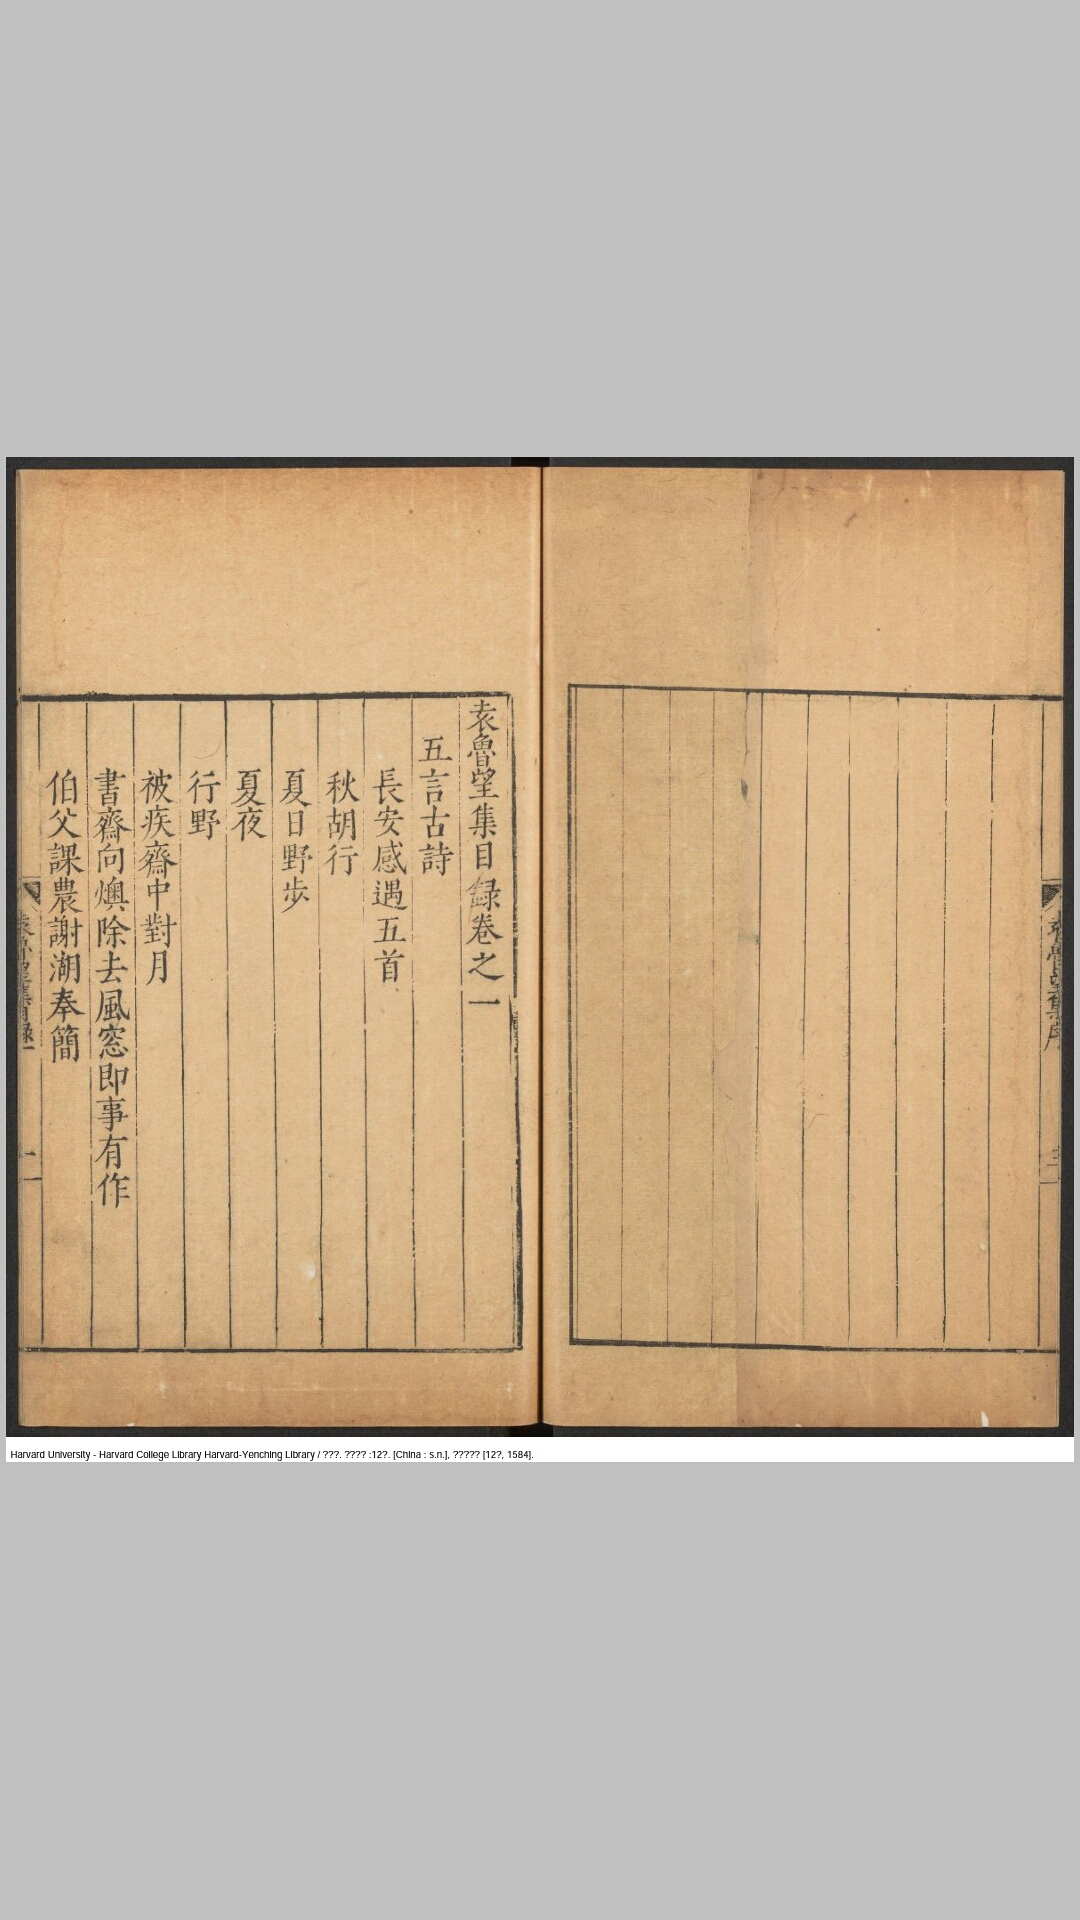 袁魯望集目録卷之一
五言古詩
長安感遇五首
秋胡行
夏日野步
夏夜
行野
被疾齋中對月
書齋向燠除去風窓即事有作
伯父課農謝湖奉簡
Harvard University - Harvard College Library Harvard-Yenching Library / ???. ???? :12?. [China : s.n.], ????? [12?, 1584].